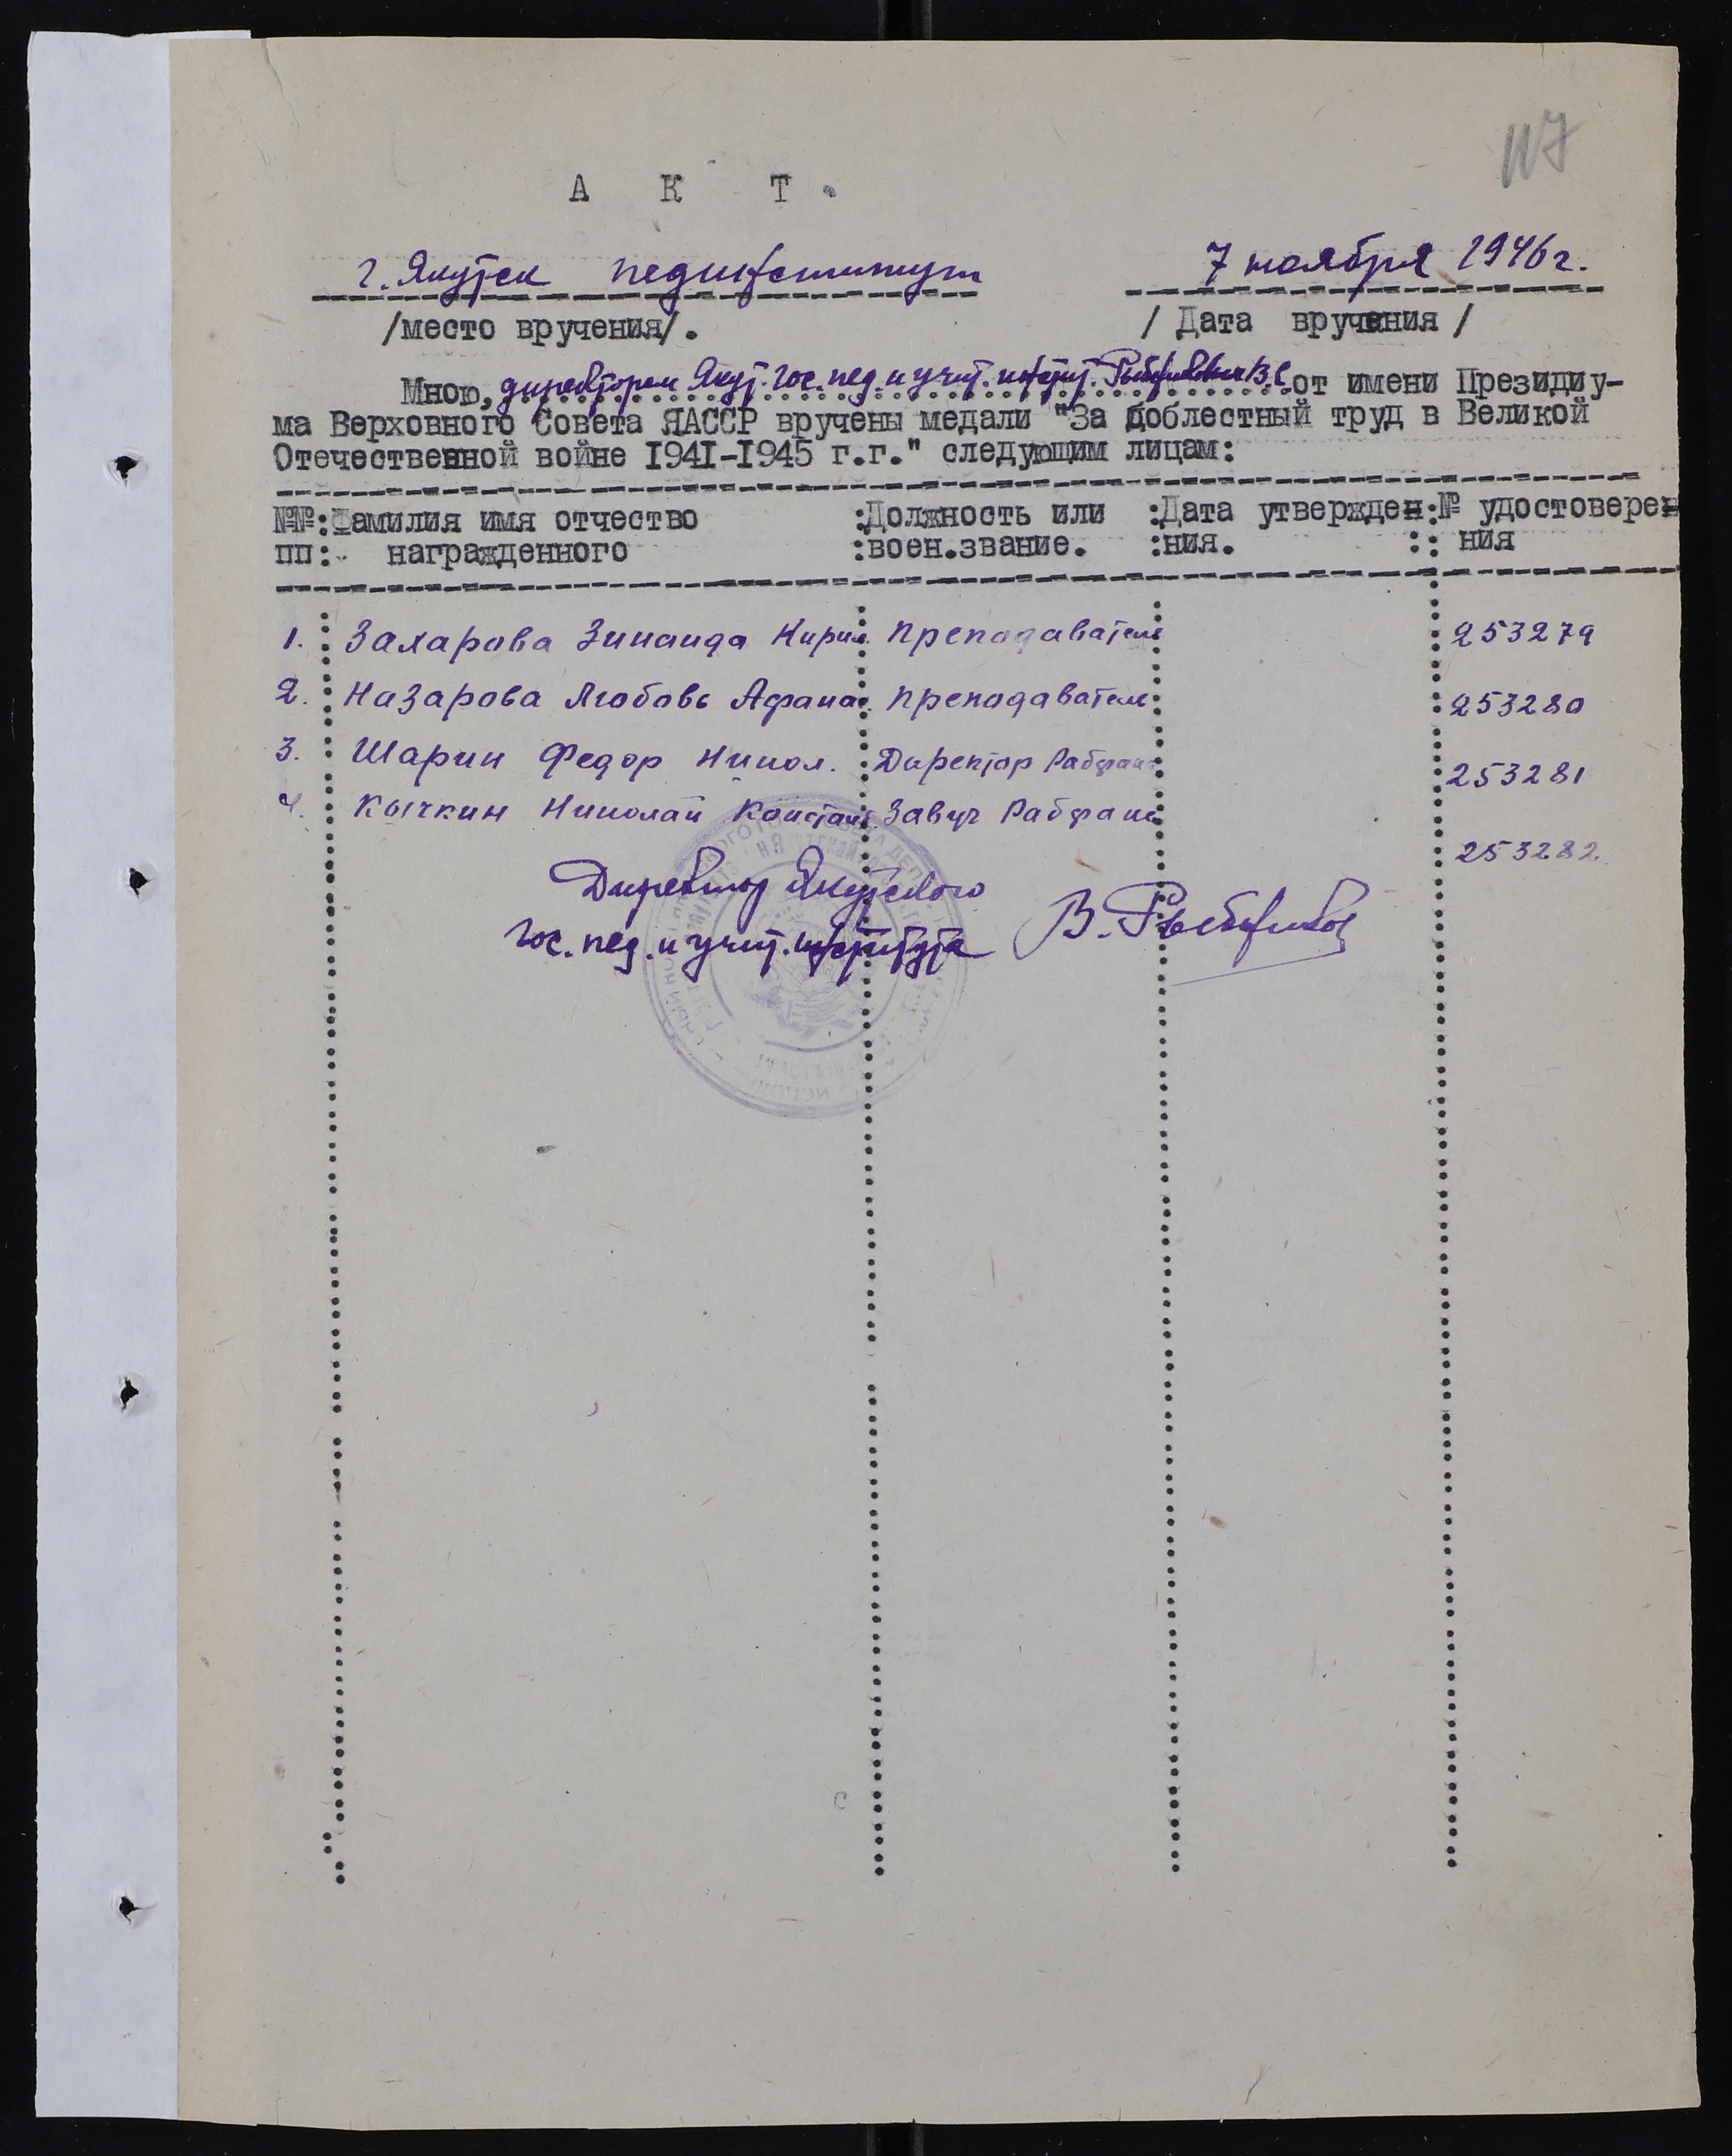 117
А К Т.
г. Якутск пединститут 7 ноября 1946 г.
/место вручения/. / Дата вручения /
Мною, директором Якут. гос. пед. и учит. инстит. от имени Президиу-
ма Верховного Совета ЯАССР вручены медали "За доблестный труд в Великой
Отечественной войне 1941-1945 г.г." следующим лицам:
№№:Фамилия имя отчество :Должность или :Дата утвержден:№ удостоверен
пп:. награжденного :воен.звание. :ния. :: ния
1. Захарова Зинаида Кирил. Преподаватель 253279
2. Назарова Любовь Афана. Преподаватель 253280
3. Шарин Федор Никол. Директор Рабфака 253281
4. Кычкин Николай Констан. Завуч Рабфака 253282.
Директор Якутского
гос. пед. и учит. института